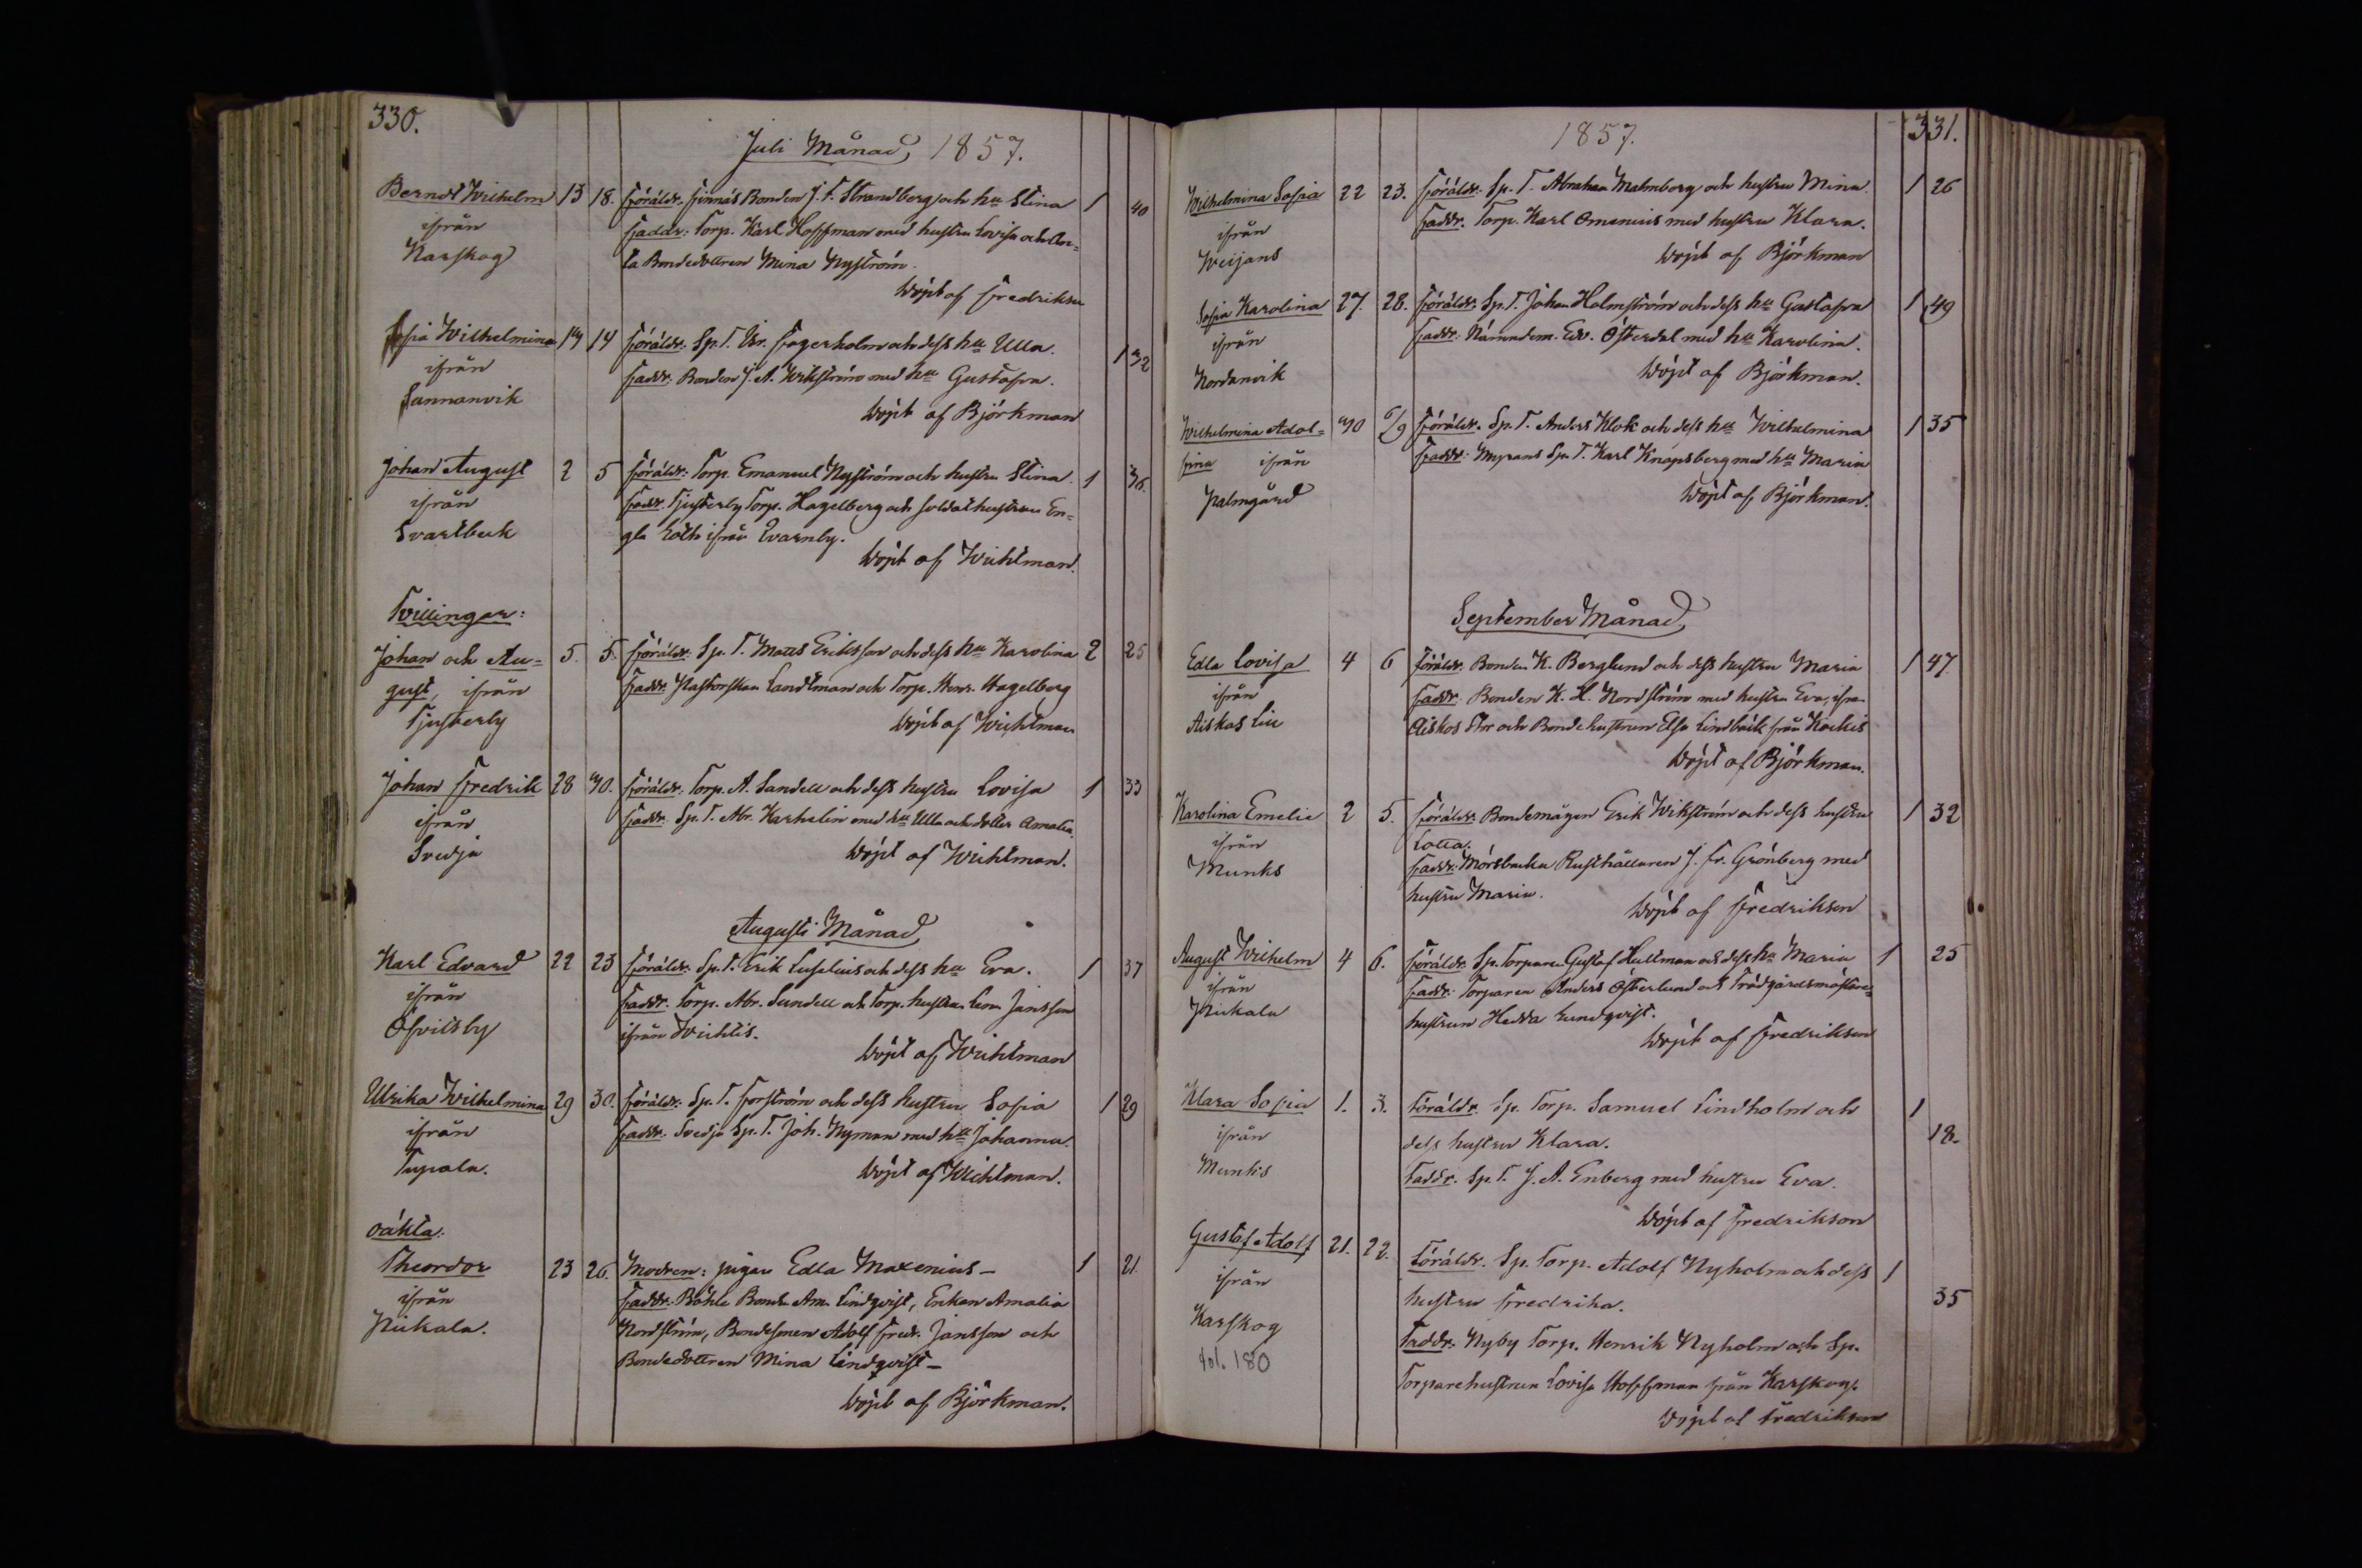 330.
Juli Månad, 1857.
Berndt Wilhelm 13 18. Föräldr. Finnäs Bonden J. F. Strandberg och hu Stina 1 40
ifrån Faddr: Torp. Karl Hoffman med hustru Lovisa och
Karskog ta Bondedottren Mina Nyström.
Döpt af Fredrikson
Sofia Wilhelmina 14 Föräldr. Sp. T. Fagerholm och dess hu Ulla. 1 32
ifrån Faddr. Bonden J. A. Wikström med hu Gustafva.
Sannanvik Döpt af Björkman
Johan August 2 5 Föräldr: Torp. Emanuel Nyström och hustru Stina. 1 36.
ifrån Faddr. Tjusterby Torp. Hagelberg och soldathustrun En=
Svartbeck gla ifrån Evarnby.
Döpt af Wichtman.
Tvillingar:
Johan och Au= 5. 5. Föräldr. Sp. T. Matts Eriksson och dess hu Karolina 2 25
gust, ifrån Faddr. Pastorskan Landtman och Torp. Henr. Hagelberg
Tjusterby Döpt af Wichtman
Johan Fredrik 28 Föräldr. Torp. A. Sandell och dess hustru Lovisa 1 33
ifrån Faddr. Sp. T. Abr. Karhelin med hu Ulla och dotter Amalia.
Svedja Döpt af Wichtman.
Augusti Månad
Karl Edvard 22 23 Föräldr. Sp. T. Erik och dess hu Eva. 1 37
ifrån Faddr. Torp. Abr. Sundell och Torp. hustru Jansson
Öfvitsby ifrån Wichtis.
Döpt af Wichtman
Ulrika Wilhelmina 29 30. Föräldr. Sp. T. Forström och dess hustru Sofia 1 29
ifrån Faddr. Svedja Sp. T. Joh. Nyman med hu Johanna.
Tupala. Döpt af Wichtman.
oäkta:
Theordor 23 26. Modren: pigan Edla Maxenius – 1 21.
ifrån Faddr. Böhle Bonden Lindqvist, Enkan Amalia
Pickala. Nordström, Bondesonen Adolf Fredr. Jansson och
Bondedottren Mina Lindqvist –
Döpt af Björkman.
1857. 331.
Wilhelmina Sofia 22 23. Föräldr. Sp. T. Abraham Malmborg och hustru Mina 1 26
ifrån Faddr. Torp. Karl Omenius med hustru Klara.
Weijans Döpt af Björkman
Sofia Karolina 27. 28. Föräldr. Sp. T. Johan Holmström och dess hu Gustafva 1 49
ifrån Faddr. Nämndem. Edv. Österdal med hu Karolina.
Nordanvik Döpt af Björkman.
Wilhelmina Adol= 6/9 Föräldr. Sp. T. Anders Klok och dess hu Wilhelmina 1 35
fina ifrån Faddr: Myrans Sp. T. Karl Knapsberg med hu Maria
Palmgård Döpt af Björkman.
September Månad
Edla Lovisa 4 6 Föräldr. Bonden K. Berglund och dess hustru Maria 1 47
ifrån Faddr. Bonden K. H. Nordström med hustru Eva, ifrån
Aiskos Lill Aiskos Stor och Bondehustrun Elsa Lindbäck från Kockis
Döpt af Björkman.
Karolina Emelie 2 5. Föräldr. Bondemågen Erik Wikström och dess hustru 1 32
ifrån Lotta.
Munks Faddr: Mörsbacka Rusthållaren J. Fr. Grönberg med
hustru Maria.
Döpt af Fredrikson
August Wilhelm 4 6. Föräldr. Sp. Torparen Gustaf Hultman och dess hu Maria 1 25
ifrån Faddr. Torparen Anders Österlund och Trädgårdsmästare=
Pickala hustrun Hedda Lundqvist.
Döpt af Fredrikson
Klara Sofia 1. 3. Föräldr. Sp. Torp. Samuel Lindholm och 1 18.
ifrån dess hustru Klara.
Munks Faddr. Sp. T. J. A. Enberg med hustru Eva.
Döpt af Fredrikson
Gustaf Adolf 21. 22. Föräldr. Sp. Torp. Adolf Nyholm och dess 1 35
ifrån hustru Fredrika.
Karskog Faddr. Nyby Torp. Henrik Nyholm och Sp.
fol. 180 Torparehustrun Lovisa Hoffman från Karskog.
Döpt af Fredrikson